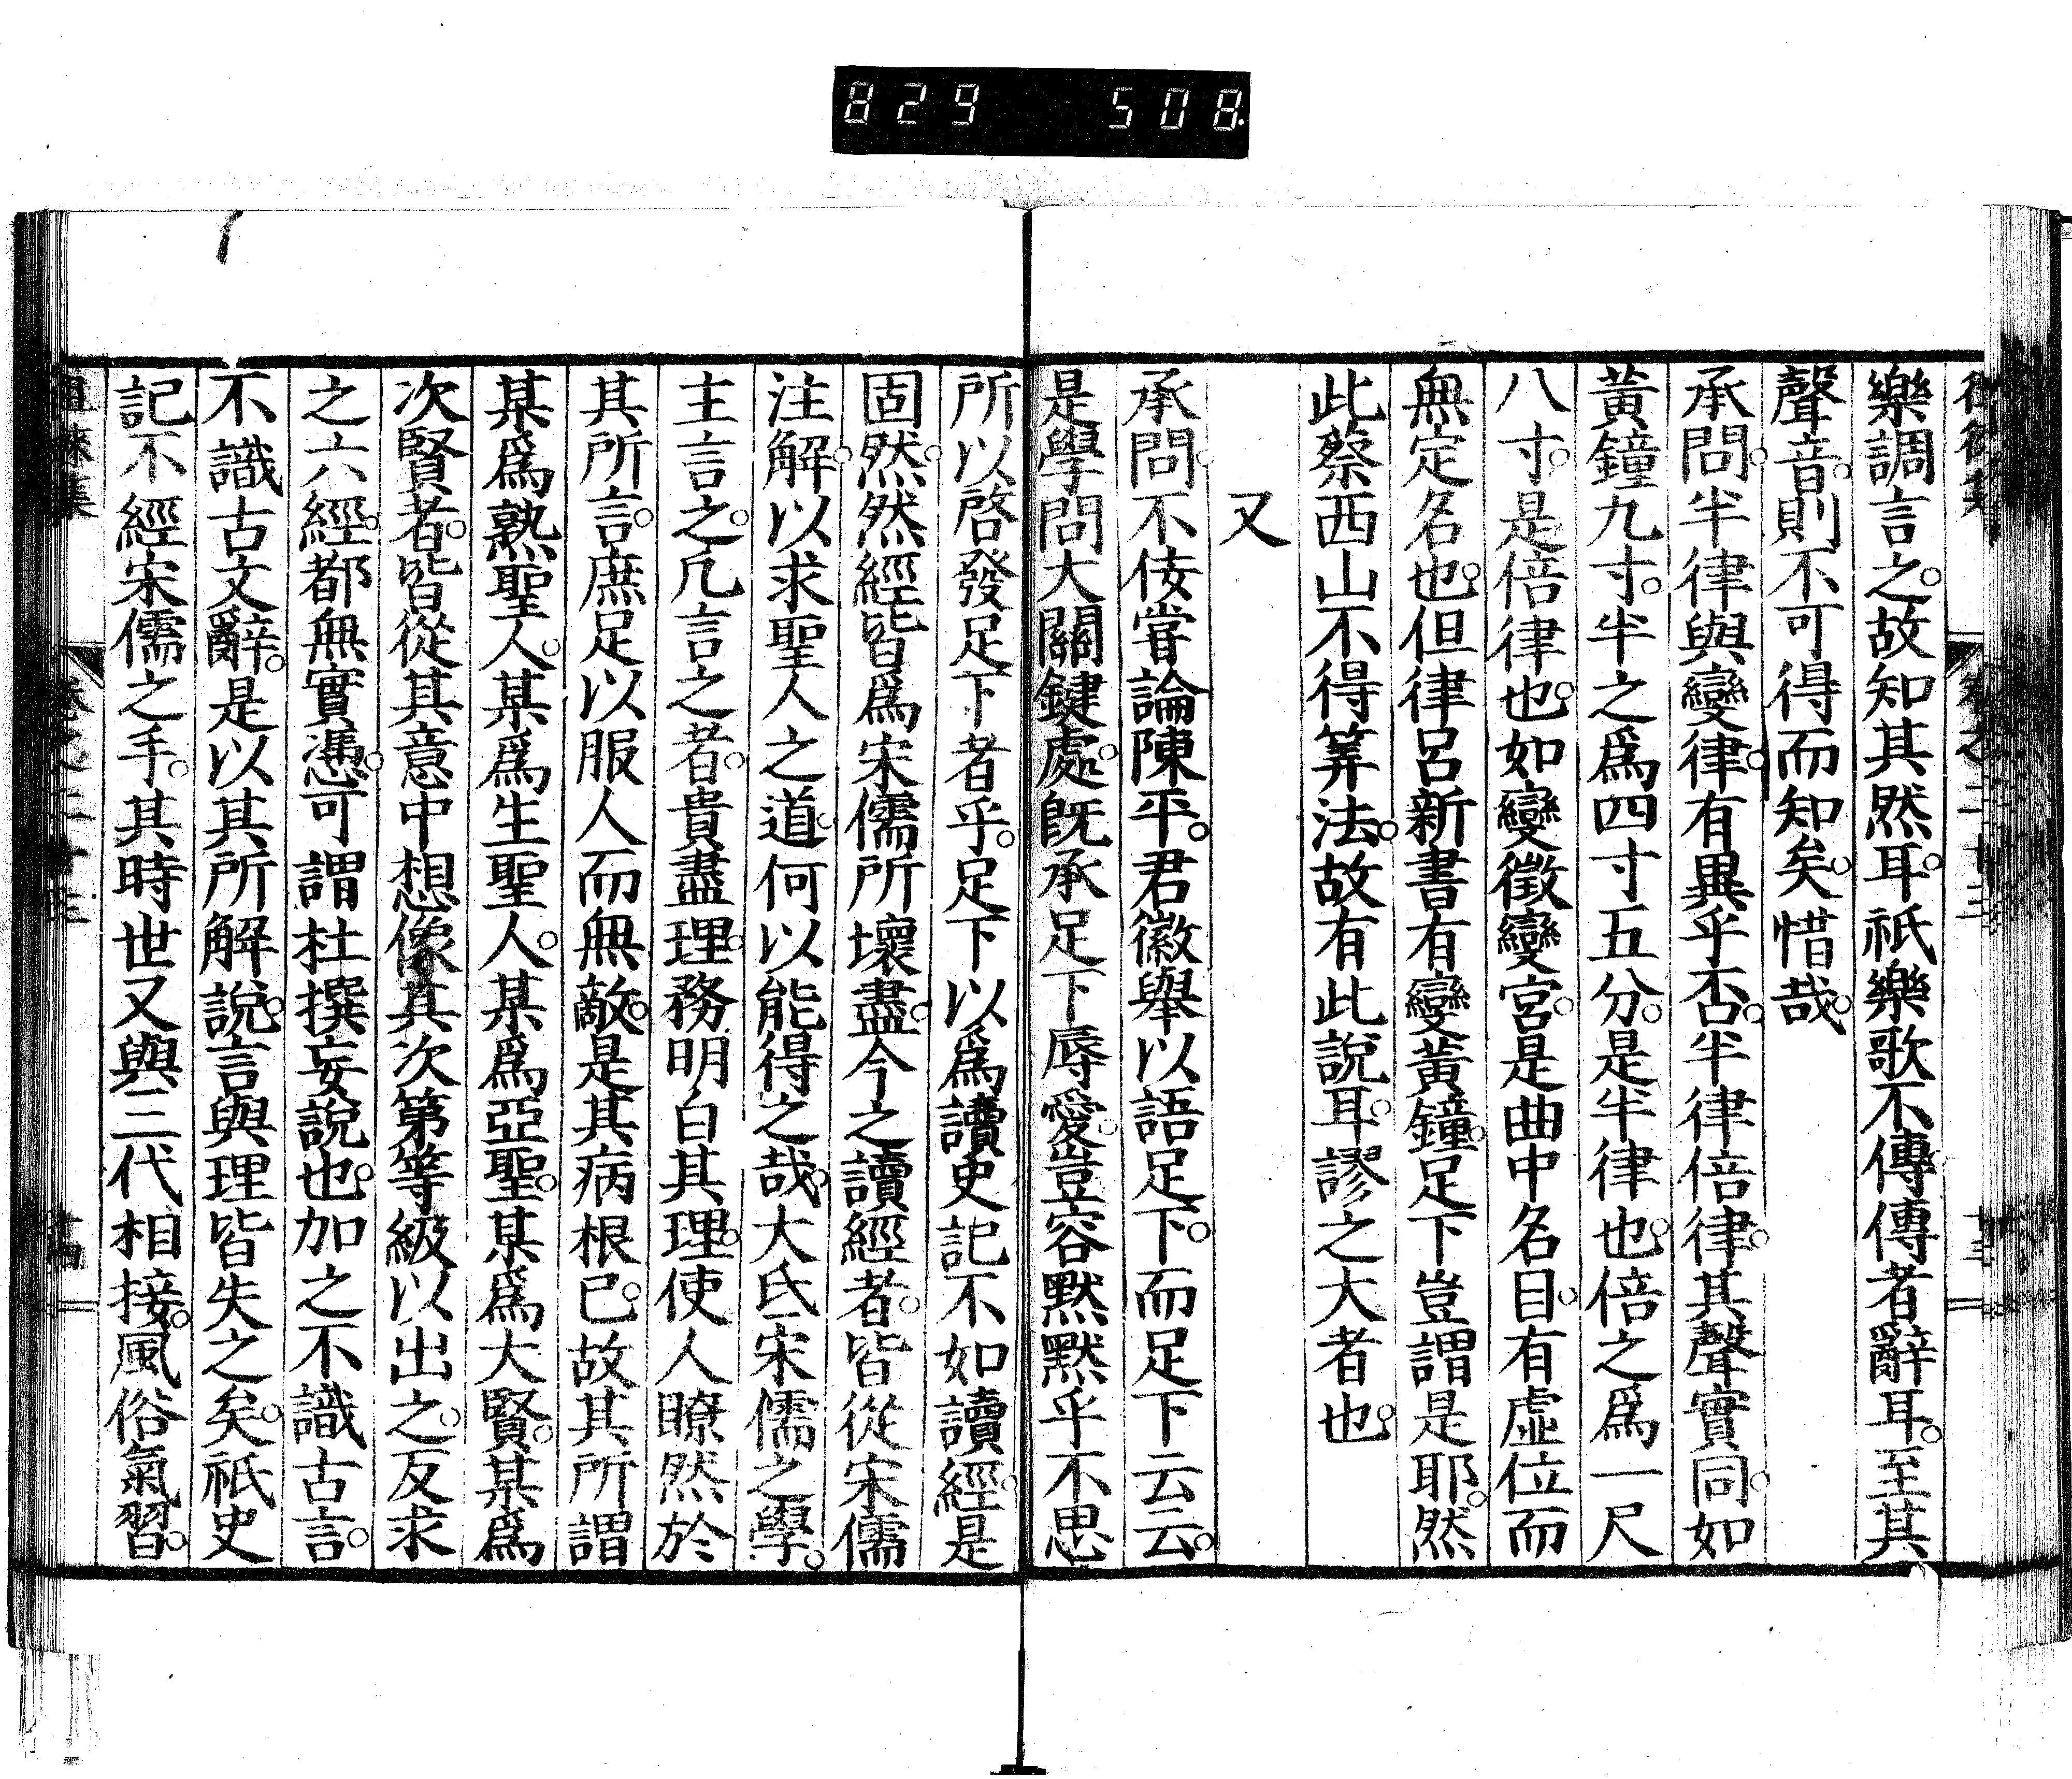 829 508
樂調言之。故知其然耳。祇樂歌不傳。傳者辭耳。至其
聲音。則不可得而知矣。惜哉。
承問。半律與變律。有異乎否。半律倍律。其聲實同。如
黃鐘九寸。半之爲四寸五分。是半律也。倍之爲一尺
八寸。是倍律也。如變徵變宮。是曲中名目。有虛位而
無定名也。但律呂新書有變黃鐘。足下豈謂是耶。然
此蔡西山不得筭法。故有此說耳。謬之大者也。
又
承問。不佞嘗論陳平。君徽舉以語足下。而足下云云。
是學問大關鍵處。既承足下辱愛。豈容默默乎。不思
所以啓發足下者乎。足下以爲讀史記不如讀經。是
固然。然經皆爲宋儒所壞盡。今之讀經者。皆從宋儒
注解。以求聖人之道。何以能得之哉。大氐宋儒之學。
主言之。凢言之者。貴盡理。務明白其理。使人瞭然於
其所言。庶足以服人而無敵。是其病根已。故其所謂
某爲熟聖人。某爲生聖人。某爲亞聖。某爲大賢。某爲
次賢者。皆從其意中想像其次第等級以出之。反求
之六經。都無實憑。可謂杜撰妄說也。加之不識古言。
不識古文辭。是以其所解說。言與理皆失之矣。祇史
記不經宋儒之手。其時世又與三代相接。風俗氣習。